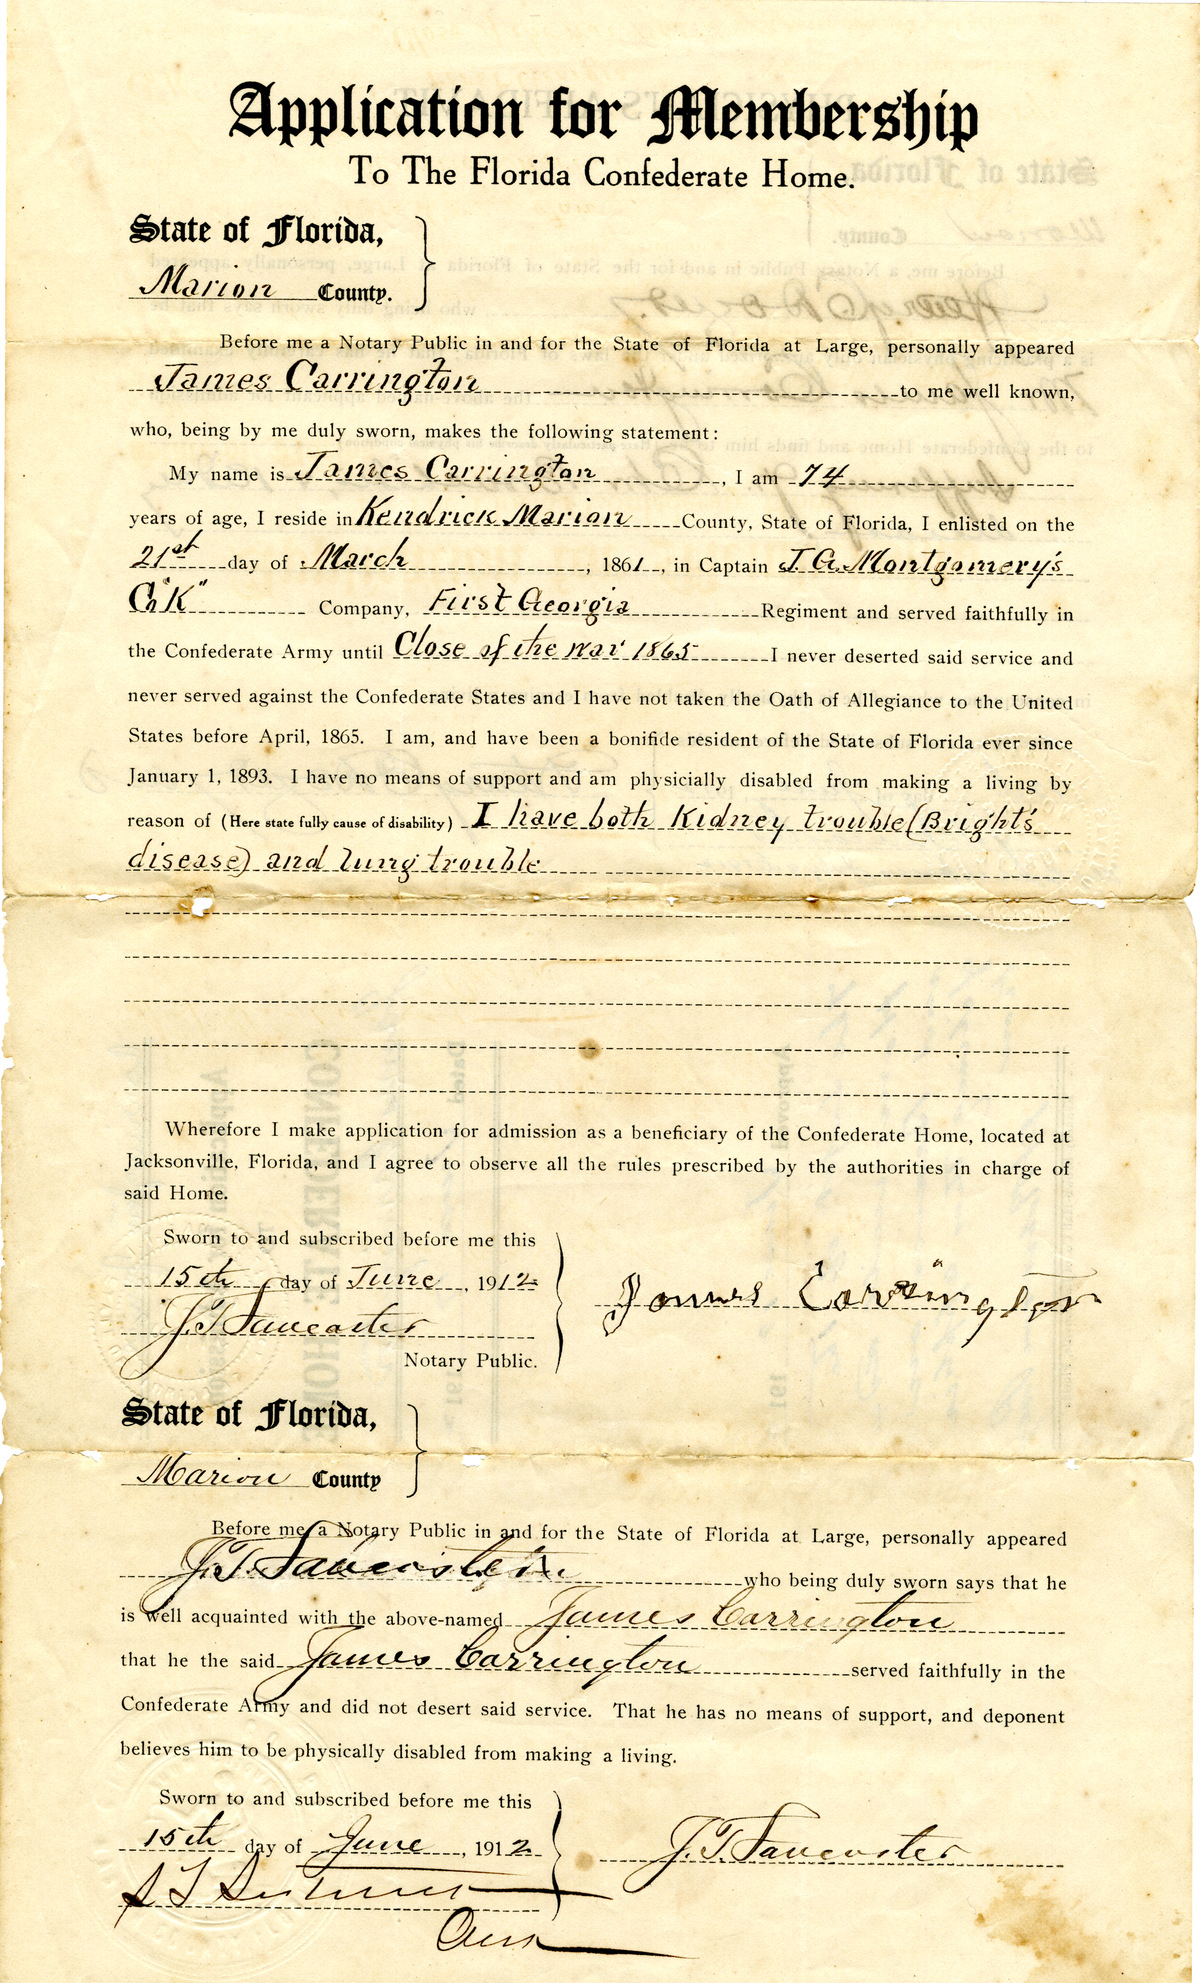 Application for Membership
To The Florida Confederate Home.
State of Florida,
Marion County.
Before me a Notary Public in and for the State of Florida at Large, personally appeared
James Carrington to me well known,
who, being by me duly sworn, makes the following statement:
My name is James Carrington, I am 74
years of age, I reside in Kendrick Marion County, State of Florida, I enlisted on the
21st day of March, 1861, in Captain J. G. Montgomery's
Co "K" Company, First Georgia Regiment and served faithfully in
the Confederate Army until Close of the war 1865 I never deserted said service and
never served against the Confederate States and I have not taken the Oath of Allegiance to the United
States before April, 1865. I am, and have been a bonifide resident of the State of Florida ever since
January 1, 1893. I have no means of support and am physicially disabled from making a living by
reason of (Here state fully cause of disability) I have both Kidney trouble (Bright's
disease) and lung trouble
Wherefore I make application for admission as a beneficiary of the Confederate Home, located at
Jacksonville, Florida, and I agree to observe all the rules prescribed by the authorities in charge of
said Home.
Sworn to and subscribed before me this
15th day of June, 1912
James Carrington
J. T. Lancaster
Notary Public.
State of Florida,
Marion County
Before me a Notary Public in and for the State of Florida at Large, personally appeared
J. T. Lancaster who being duly sworn says that he
is well acquainted with the above-named James Carrington
that he the said James Carrington served faithfully in the
Confederate Army and did not desert said service. That he has no means of support, and deponent
believes him to be physically disabled from making a living.
Sworn to and subscribed before me this
15th day of June, 1912
J. T. Lancaster